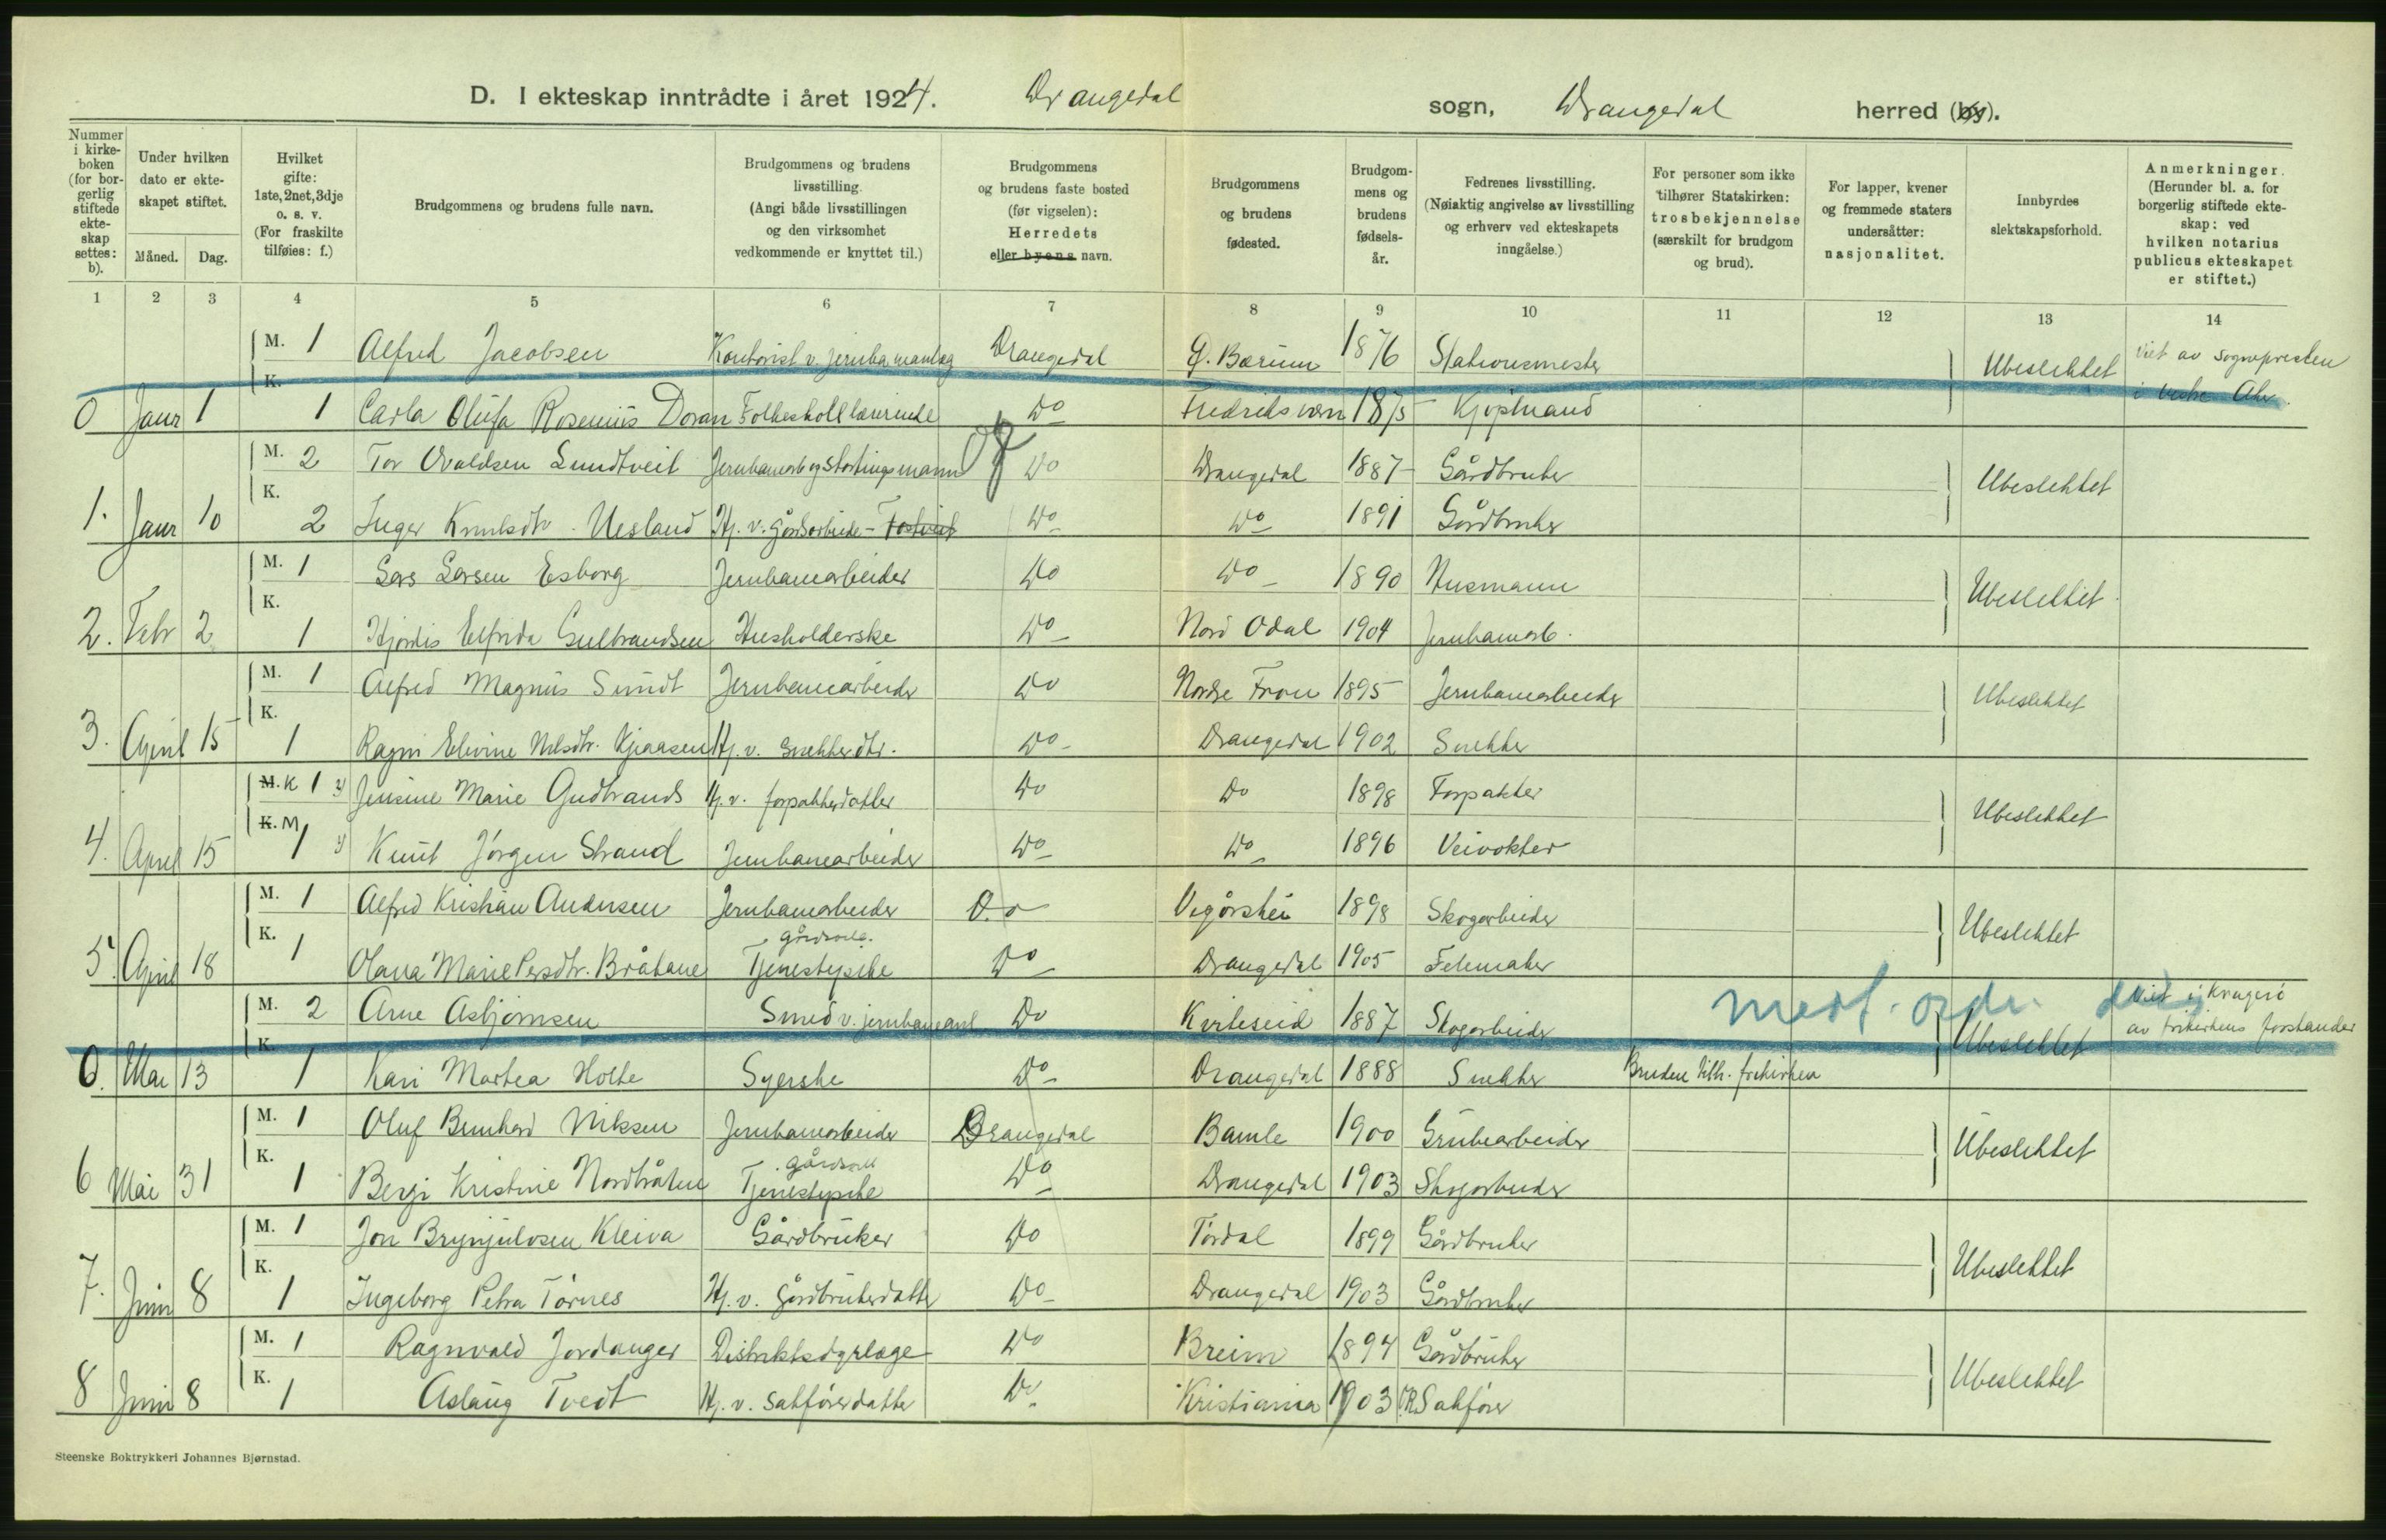 D. I ekteskap inntrådte i året 1924. Drangedal sogn, Drangedal herred (by).
Nummer i kirke-boken (for bor-gerlig stiftede ekte-skap settes: b).
Under hvilken dato er ekte-skapet stiftet.
Måned. Dag.
Hvilket gifte: 1ste, 2net, 3dje o. s. v. (For fraskilte tilføies: f.)
Brudgommens og brudens fulle navn.
Brudgommens og brudens livsstilling. (Angi både livsstillingen og den virksomhet vedkommende er knyttet til.)
Brudgommens og brudens faste bosted (før vigselen): Herredets eller byens navn.
Brudgommens og brudens fødested.
Brudgom-mens og brudens fødsels-år.
Fedrenes livsstilling. (Nøiaktig angivelse av livsstilling og erhverv ved ekteskapets inngåelse.)
For personer som ikke tilhører Statskirken: trosbekjennelse (særskilt for brudgom og brud).
For lapper, kvener og fremmede staters undersåtter: nasjonalitet.
Innbyrdes slektskapsforhold.
Anmerkninger. (Herunder bl. a. for borgerlig stiftede ekte-skap: ved hvilken notarius publicus ekteskapet er stiftet.)
1 2 3 4 5 6 7 8 9 10 11 12 13 14
M. 1 Alfred Jacobsen Kontorist v. jernbaneanlæg Drangedal Ø. Bærum 1876 Stationsmester Ubeslektet Viet av sognepresten
0 Janr 1 K. 1 Carla Olufa Rosenius Doran Folkeskolelærerinde Do Fredriksværn 1875 Kjøpmand i Vestre Aker.
M. 2 Tov Ovaldsen Lundtveit Jernbanearb og stortingsmann Do Drangedal 1887 Gårdbruker Ubeslektet
1. Janr 10 K. 2 Inger Knutsdtr. Vesland Hj. v. gårdsarbeide Do Do 1891 Gårdbruker
M. 1 Lars Larsen Esborg Jernbanearbeider Do Do 1890 Husmann Ubeslektet
2. Febr 2 K. 1 Hjørdis Elfrida Gulbrandsen Husholderske Do Nord Odal 1904 Jernbanearb.
M. 1 Alfred Magnus Sundt Jernbanearbeider Do Nordre Fron 1895 Jernbanearbeider Ubeslektet
3. April 15 K. 1 Ragni Elvine Nilsdtr. Kjaasen Hj. v. snekkerdtr. Do Drangedal 1902 Snekker
M. K 1 Jensine Marie Gudbrands Hj. v. forpakterdatter Do Do 1898 Forpakter Ubeslektet
4. April 15 K. M 1 Knut Jørgen Strand Jernbanearbeider Do Do 1896 Veivokter
M. 1 Alfred Kristian Andersen Jernbanearbeider Do Vegårshei 1898 Skogarbeider Ubeslektet
gårdsarb.
5. April 18 K. 1 Olava Marie Persdtr. Bråtane Tjenestepike Do Drangedal 1905 Felemaker
M. 2 Arne Asbjørnsen Smed v. jernbaneanl Do Kviteseid 1887 Skogarbeider Ubeslektet Viet i Kragerø av frikirkens forstander
0. Mai 13 K. 1 Kari Martea Holte Syerske Do Drangedal 1888 Snekker Bruden tilh. frikirken
M. 1 Oluf Bernhard Nilsen Jernbanearbeider Drangedal Bamle 1900 Grubearbeider Ubeslektet
gårdsarb
6 Mai 31 K. 1 Bergi Kristine Nordbråtene Tjenestepike Do Drangedal 1903 Skogarbeider
M. 1 Jon Brynjulvsen Kleiva Gårdbruker Do Tørdal 1899 Gårdbruker Ubeslektet
7. Juni 8 K. 1 Ingeborg Petra Tørnes Hj. v. gårdbrukerdatter Do Drangedal 1903 Gårdbruker
M. 1 Ragnvald Jordanger Distriktsdyrlæge Do Breim 1894 Gårdbruker Ubeslektet
8 Juni 8 K. 1 Aslaug Tvedt Hj. v. Sakførerdatter Do Kristiania 1903 O.R. Sakfører
Steenske Boktrykkeri Johannes Bjørnstad.